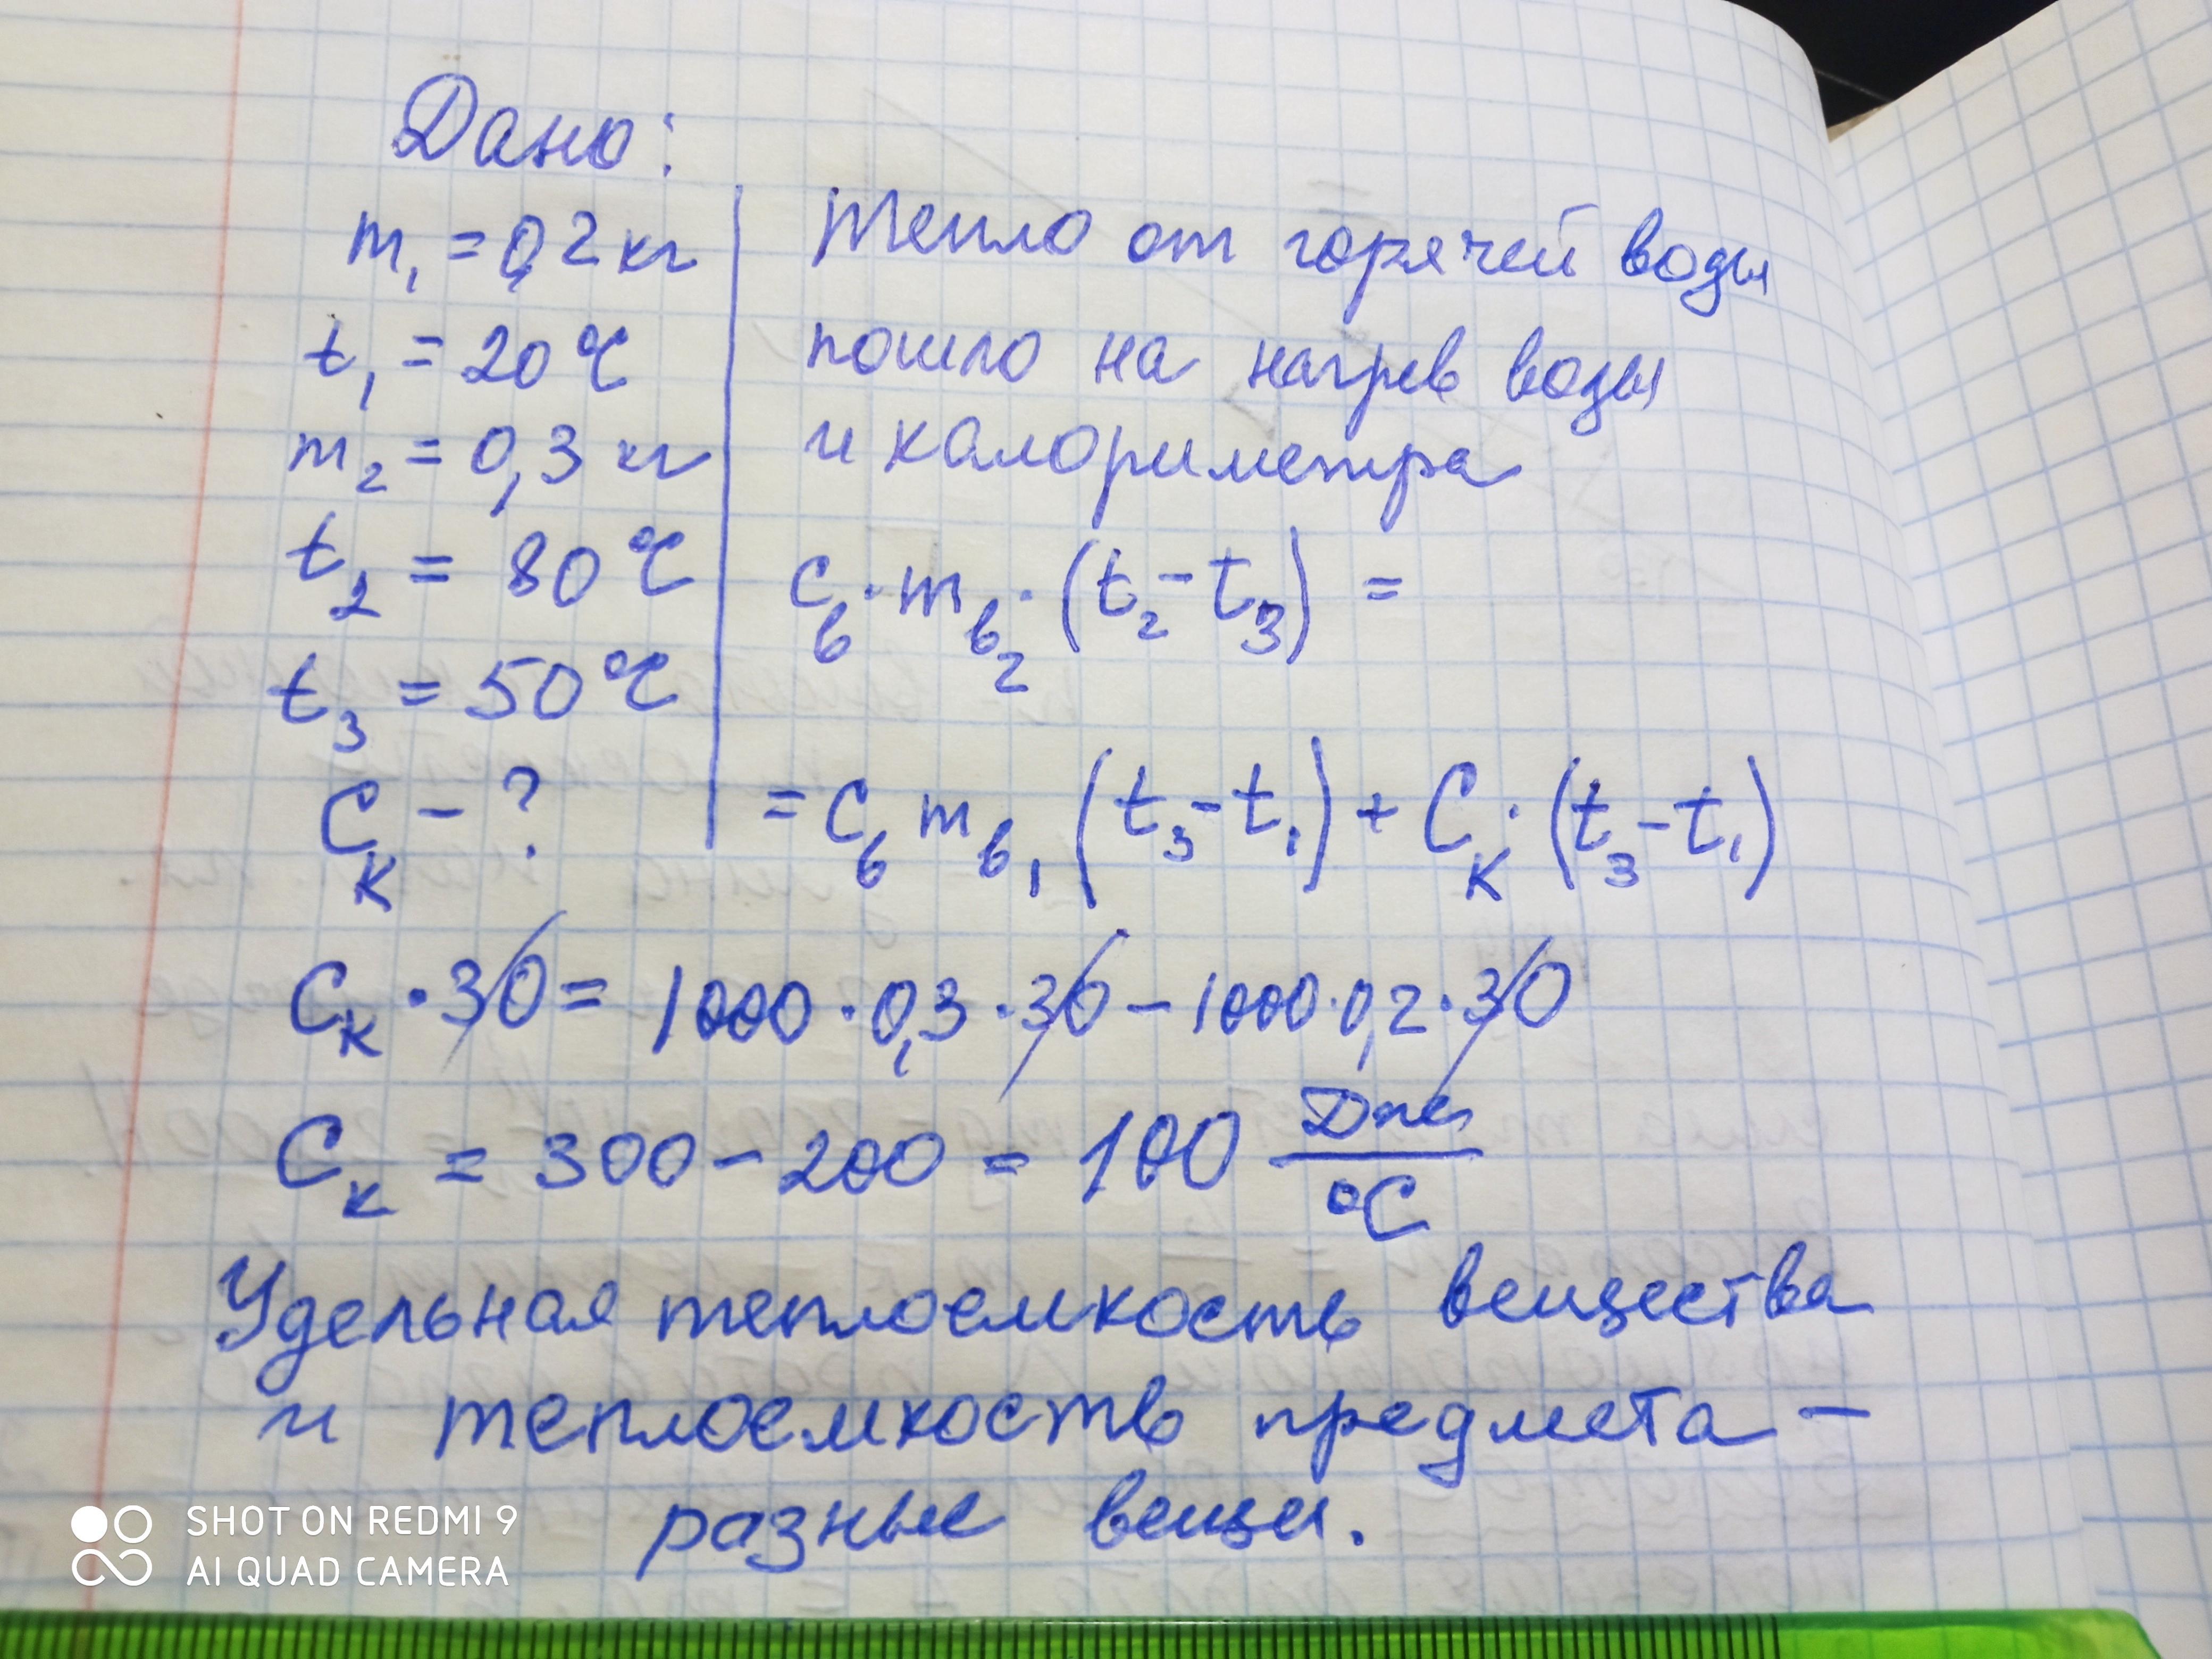 Дано:
m₁ = 0,2 кг
t₁ = 20 °C
m₂ = 0,3 кг
t₂ = 80 °C
t₃ = 50 °C
Cк - ?
Тепло от горячей воды
пошло на нагрев воды
и калориметра
cв · mв₂ · (t₂ - t₃) =
= cв mв₁ (t₃ - t₁) + Cк · (t₃ - t₁)
Cк · 30 = 1000 · 0,3 · 30 - 1000 · 0,2 · 30
Cк = 300 - 200 = 100 Дж/°C
Удельная теплоемкость вещества
и теплоемкость предмета -
разные вещи.
SHOT ON REDMI 9
AI QUAD CAMERA